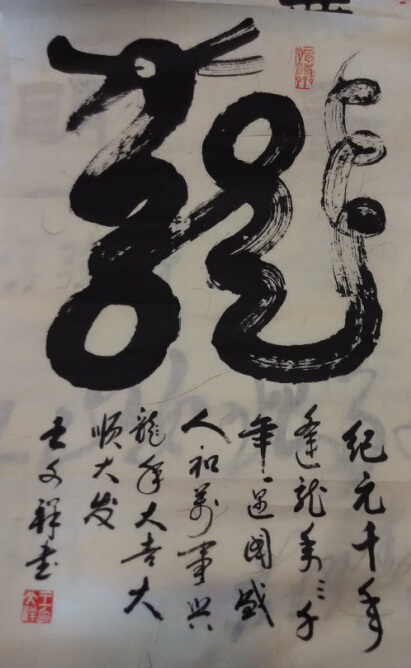 龍
纪元十年
逢龍年三千
年一遇國盛
人和萬事兴
龍年大吉大
顺大发
王文祥书